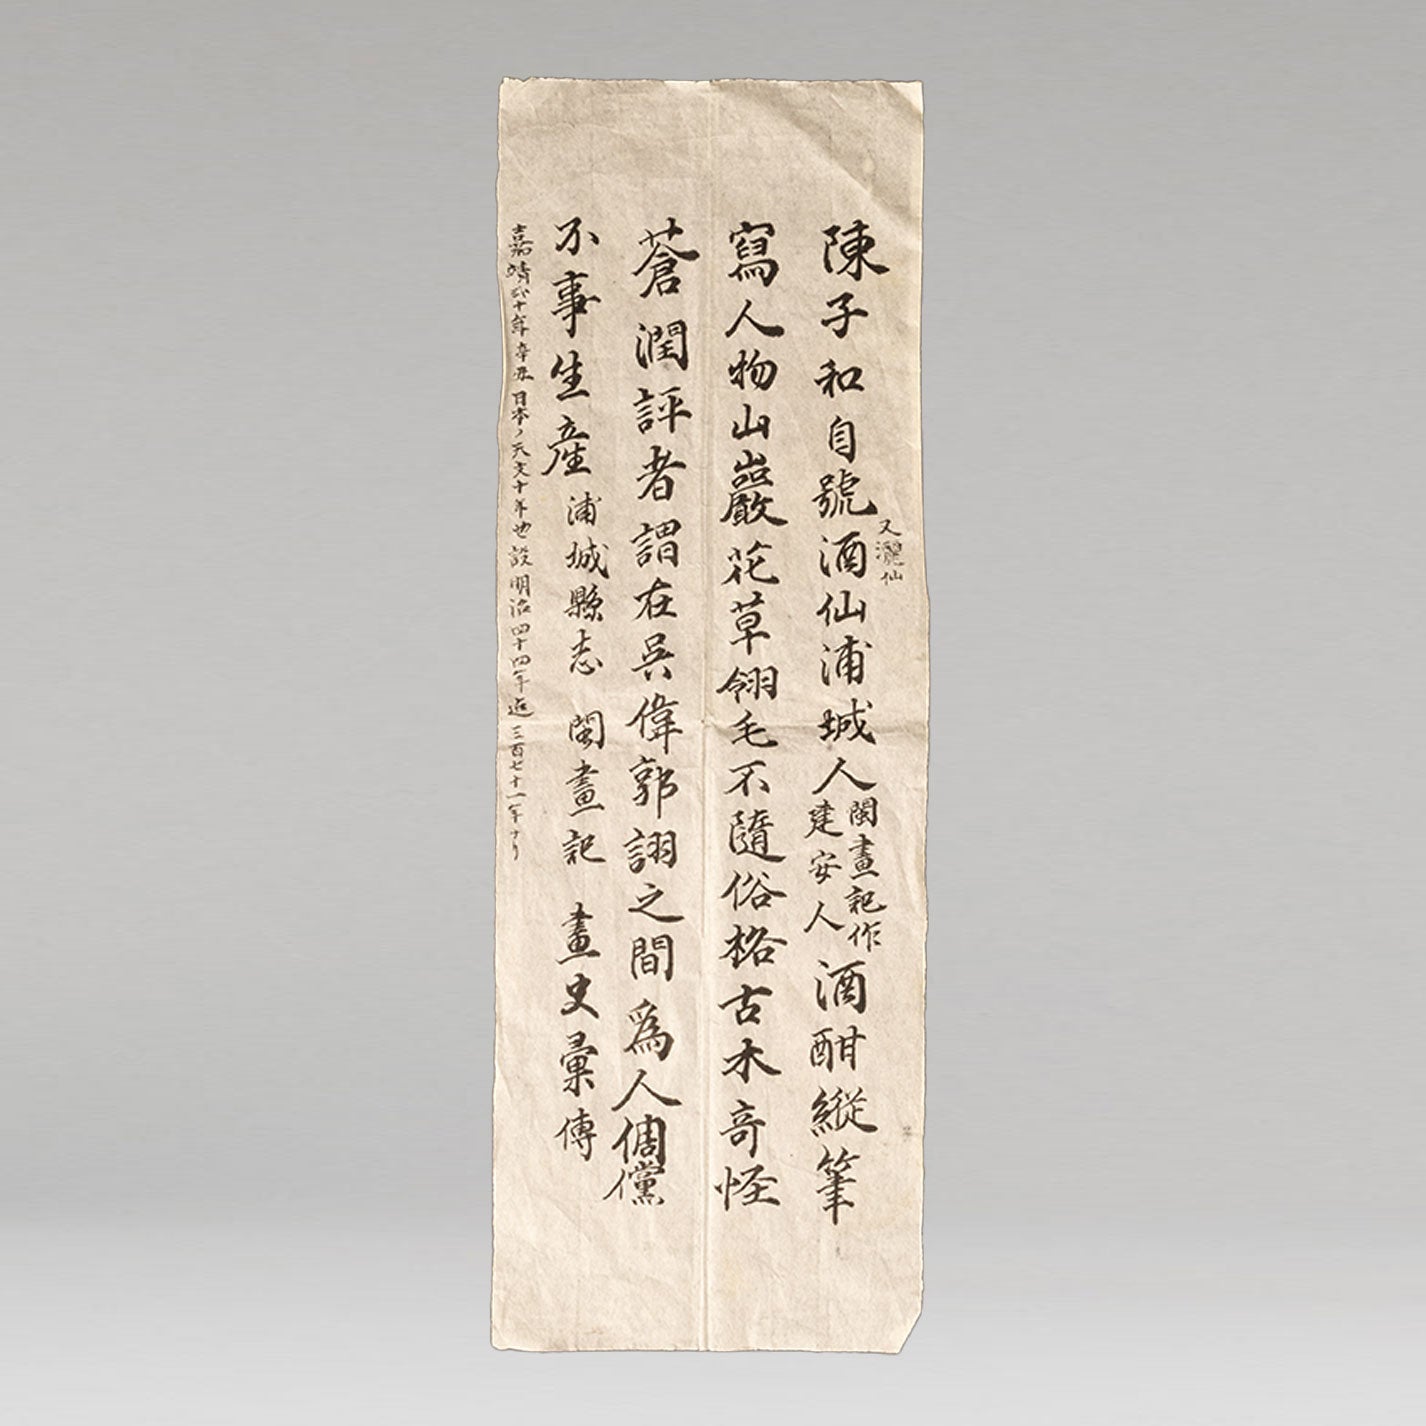 陳子和自號酒仙浦城人閩畫記作建安人酒酣縱筆
又灑仙
寫人物山巖花草翎毛不隨俗格古木奇怪
蒼潤評者謂在吳偉郭詡之間爲人倜儻
不事生產浦城縣志 閩畫記 畫史彙傳
嘉靖 十年辛丑日本ノ天文十年也 明治四十四年 三百七十一年ナリ